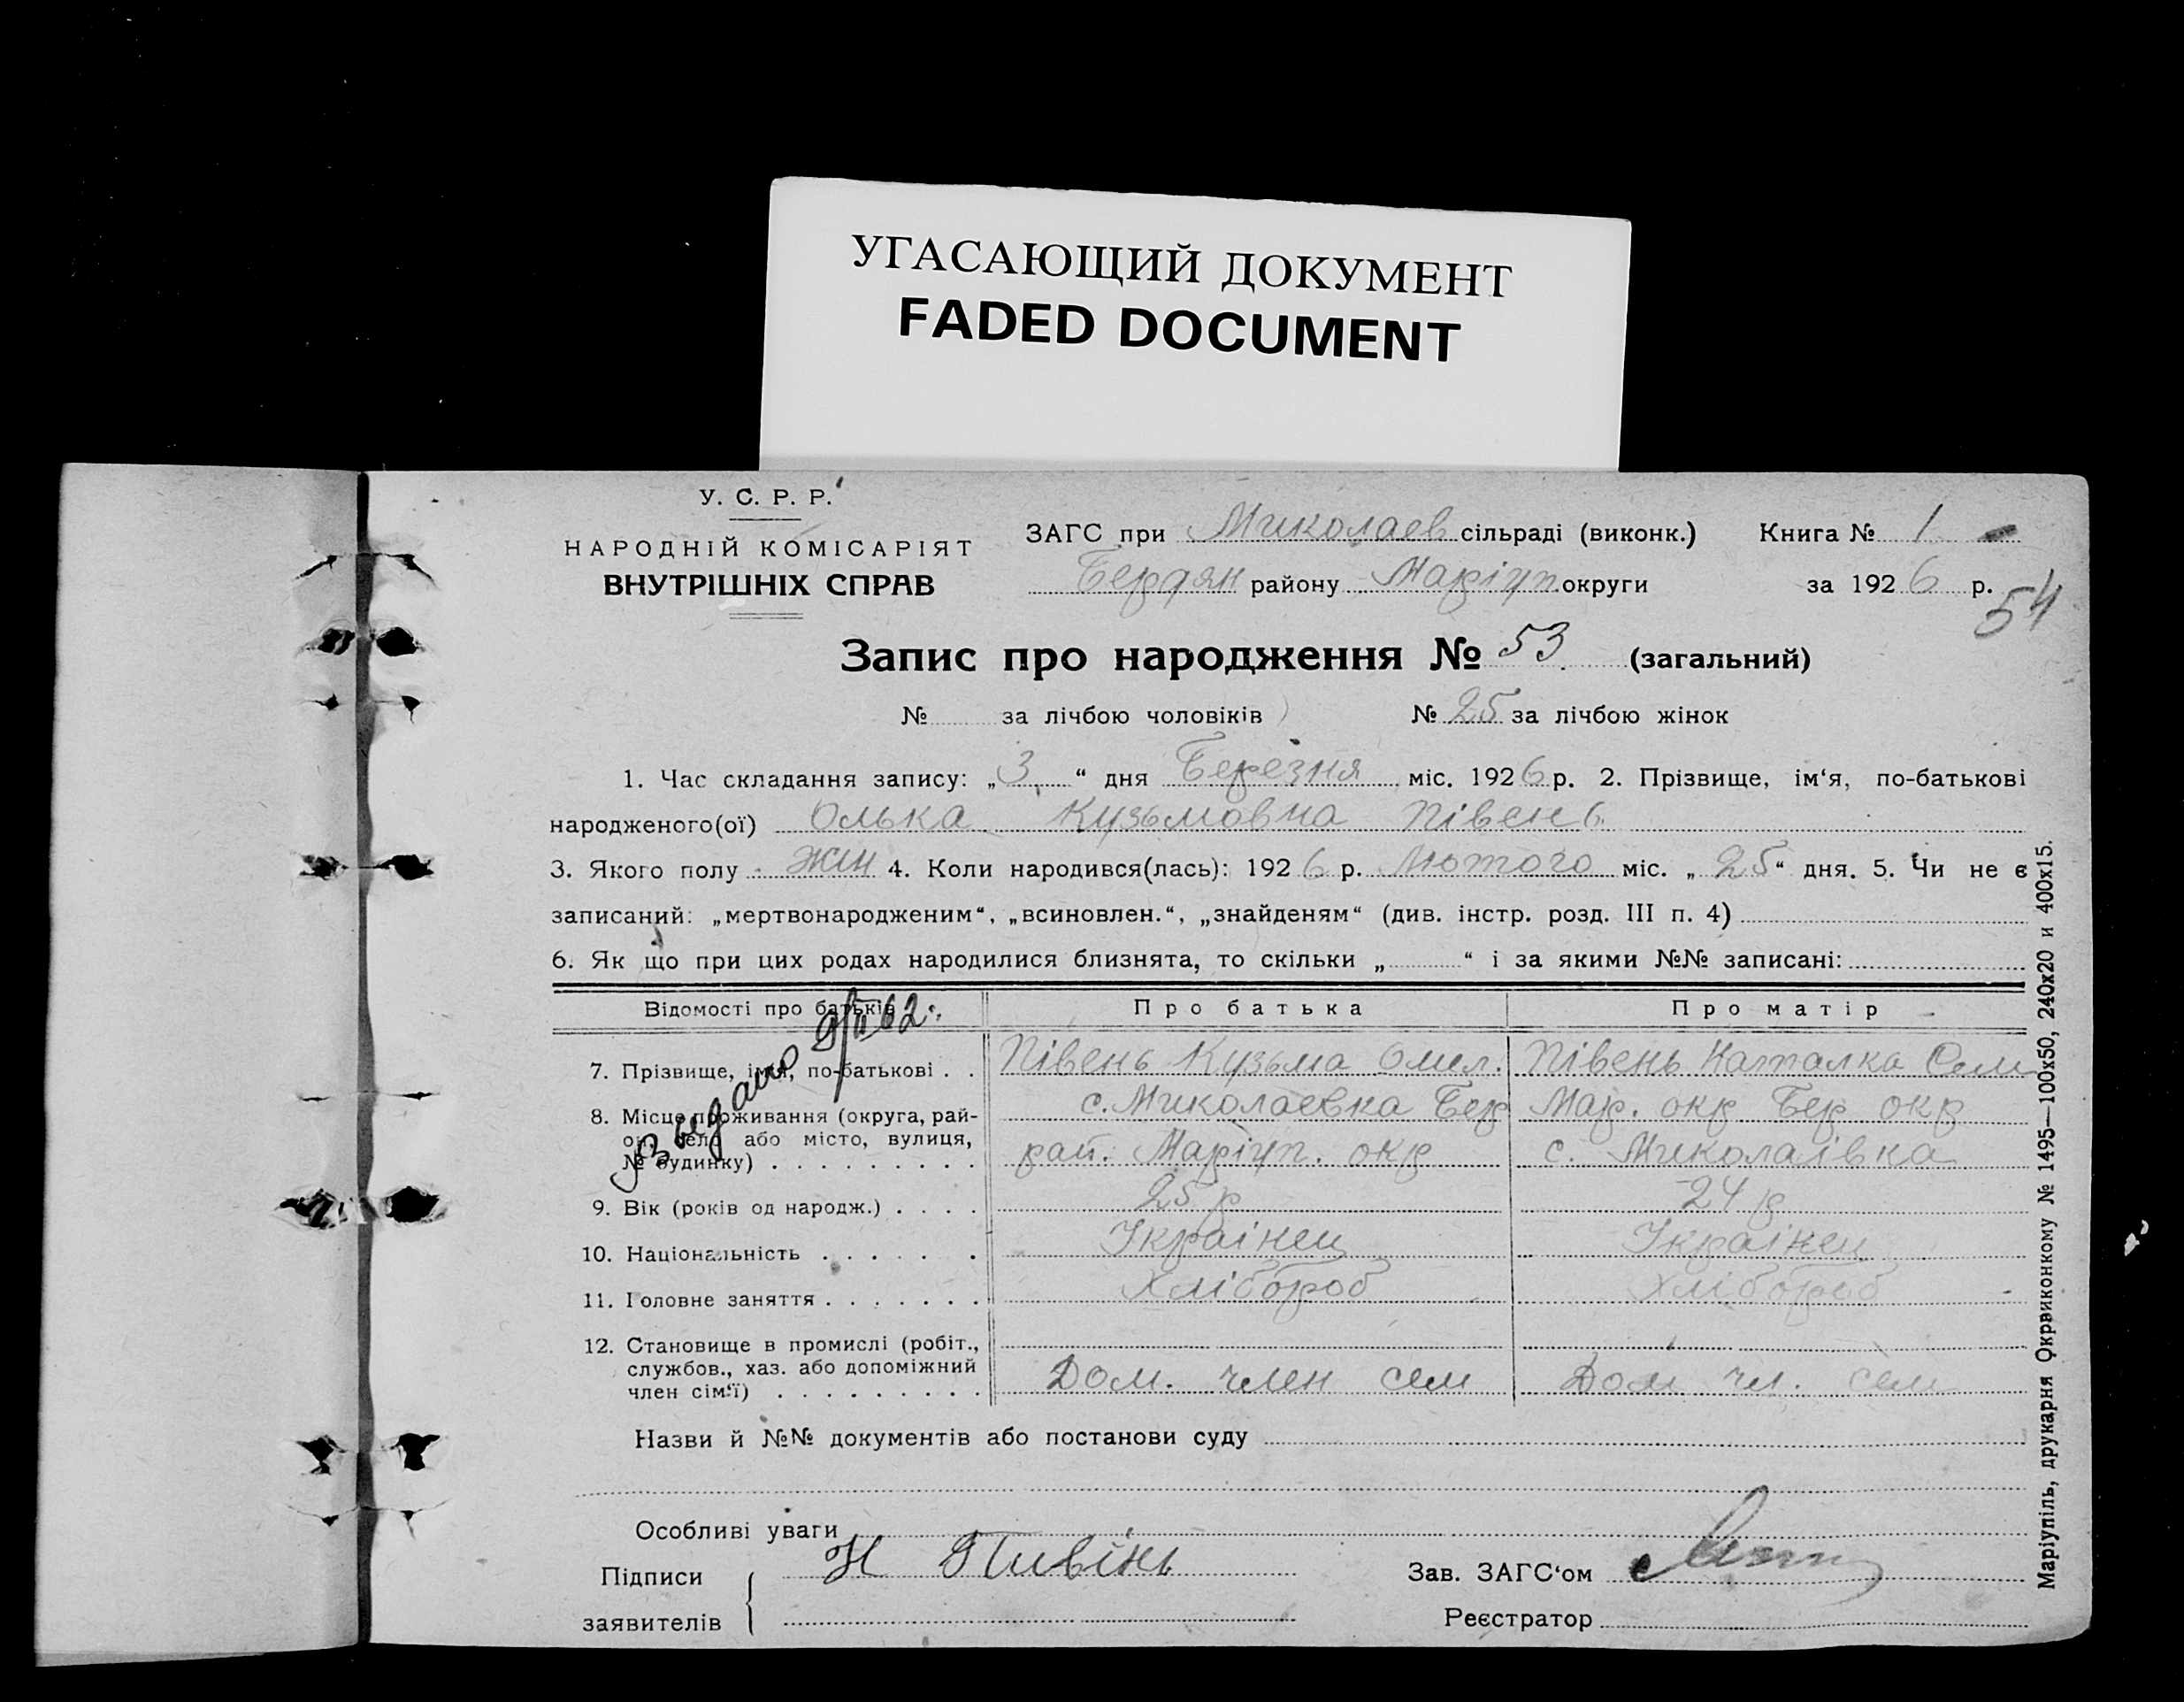 УГАСАЮЩИЙ ДОКУМЕНТ
FADED DOCUMENT
У. С. Р. Р.
НАРОДНІЙ КОМІСАРІЯТ
ВНУТРІШНІХ СПРАВ
ЗАГС при Миколаев сільраді (виконк.) Книга № 1
Бердян району Маріуп. округи за 1926 р.
54
Запис про народження № 53. (загальний)
№ за лічбою чоловіків № 25 за лічбою жінок
1. Час складання запису: „3“ дня Березня міс. 1926 р. 2. Прізвище, ім‘я, по-батькові
народженого(ої) Олька Кузьмовна Півень
3. Якого полу жін 4. Коли народився(лась): 1926 р. Лютого міс. „25“ дня. 5. Чи не є
записаний: „мертвонародженим“, „всиновлен.“, „знайденям“ (див. інстр. розд. III п. 4)
6. Як що при цих родах народилися близнята, то скільки „ “ і за якими №№ записані:
Відомості про батьків Про батька Про матір
7. Прізвище, ім‘я, по-батькові . . Півень Кузьма Омел. Півень Наталка Сем
8. Місце проживання (округа, рай- с. Миколаевка Бер Мар. окр Бер окр
он, село або місто, вулиця,
№ будинку) . . . . . . . . . рай. Маріуп. окр с. Миколаівка
9. Вік (років од народж.) . . . . 25 р 24 р
10. Національність . . . . . . Украінец Украінец
11. Головне заняття . . . . . . . Хлібороб Хлібороб
12. Становище в промислі (робіт.,
службов., хаз. або допоміжний
член сім‘ї) . . . . . . . . . Дом. член сем Дом чл. сем
Назви й №№ документів або постанови суду
Особливі уваги
Підписи Н Пивінь Зав. ЗАГС‘ом
заявителів Реєстратор
Маріупіль, друкарня Окрвиконкому № 1495—100x50, 240x20 и 400x15.